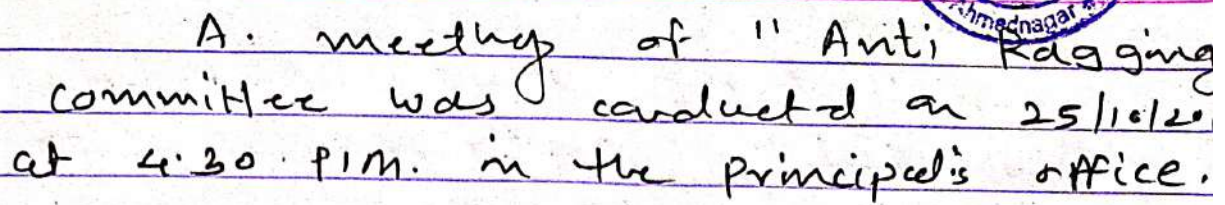 Ahmednagar
A. meeting of " Anti Ragging
committee was conducted on 25/10/20
at 4.30 P.M. in the principal's office.